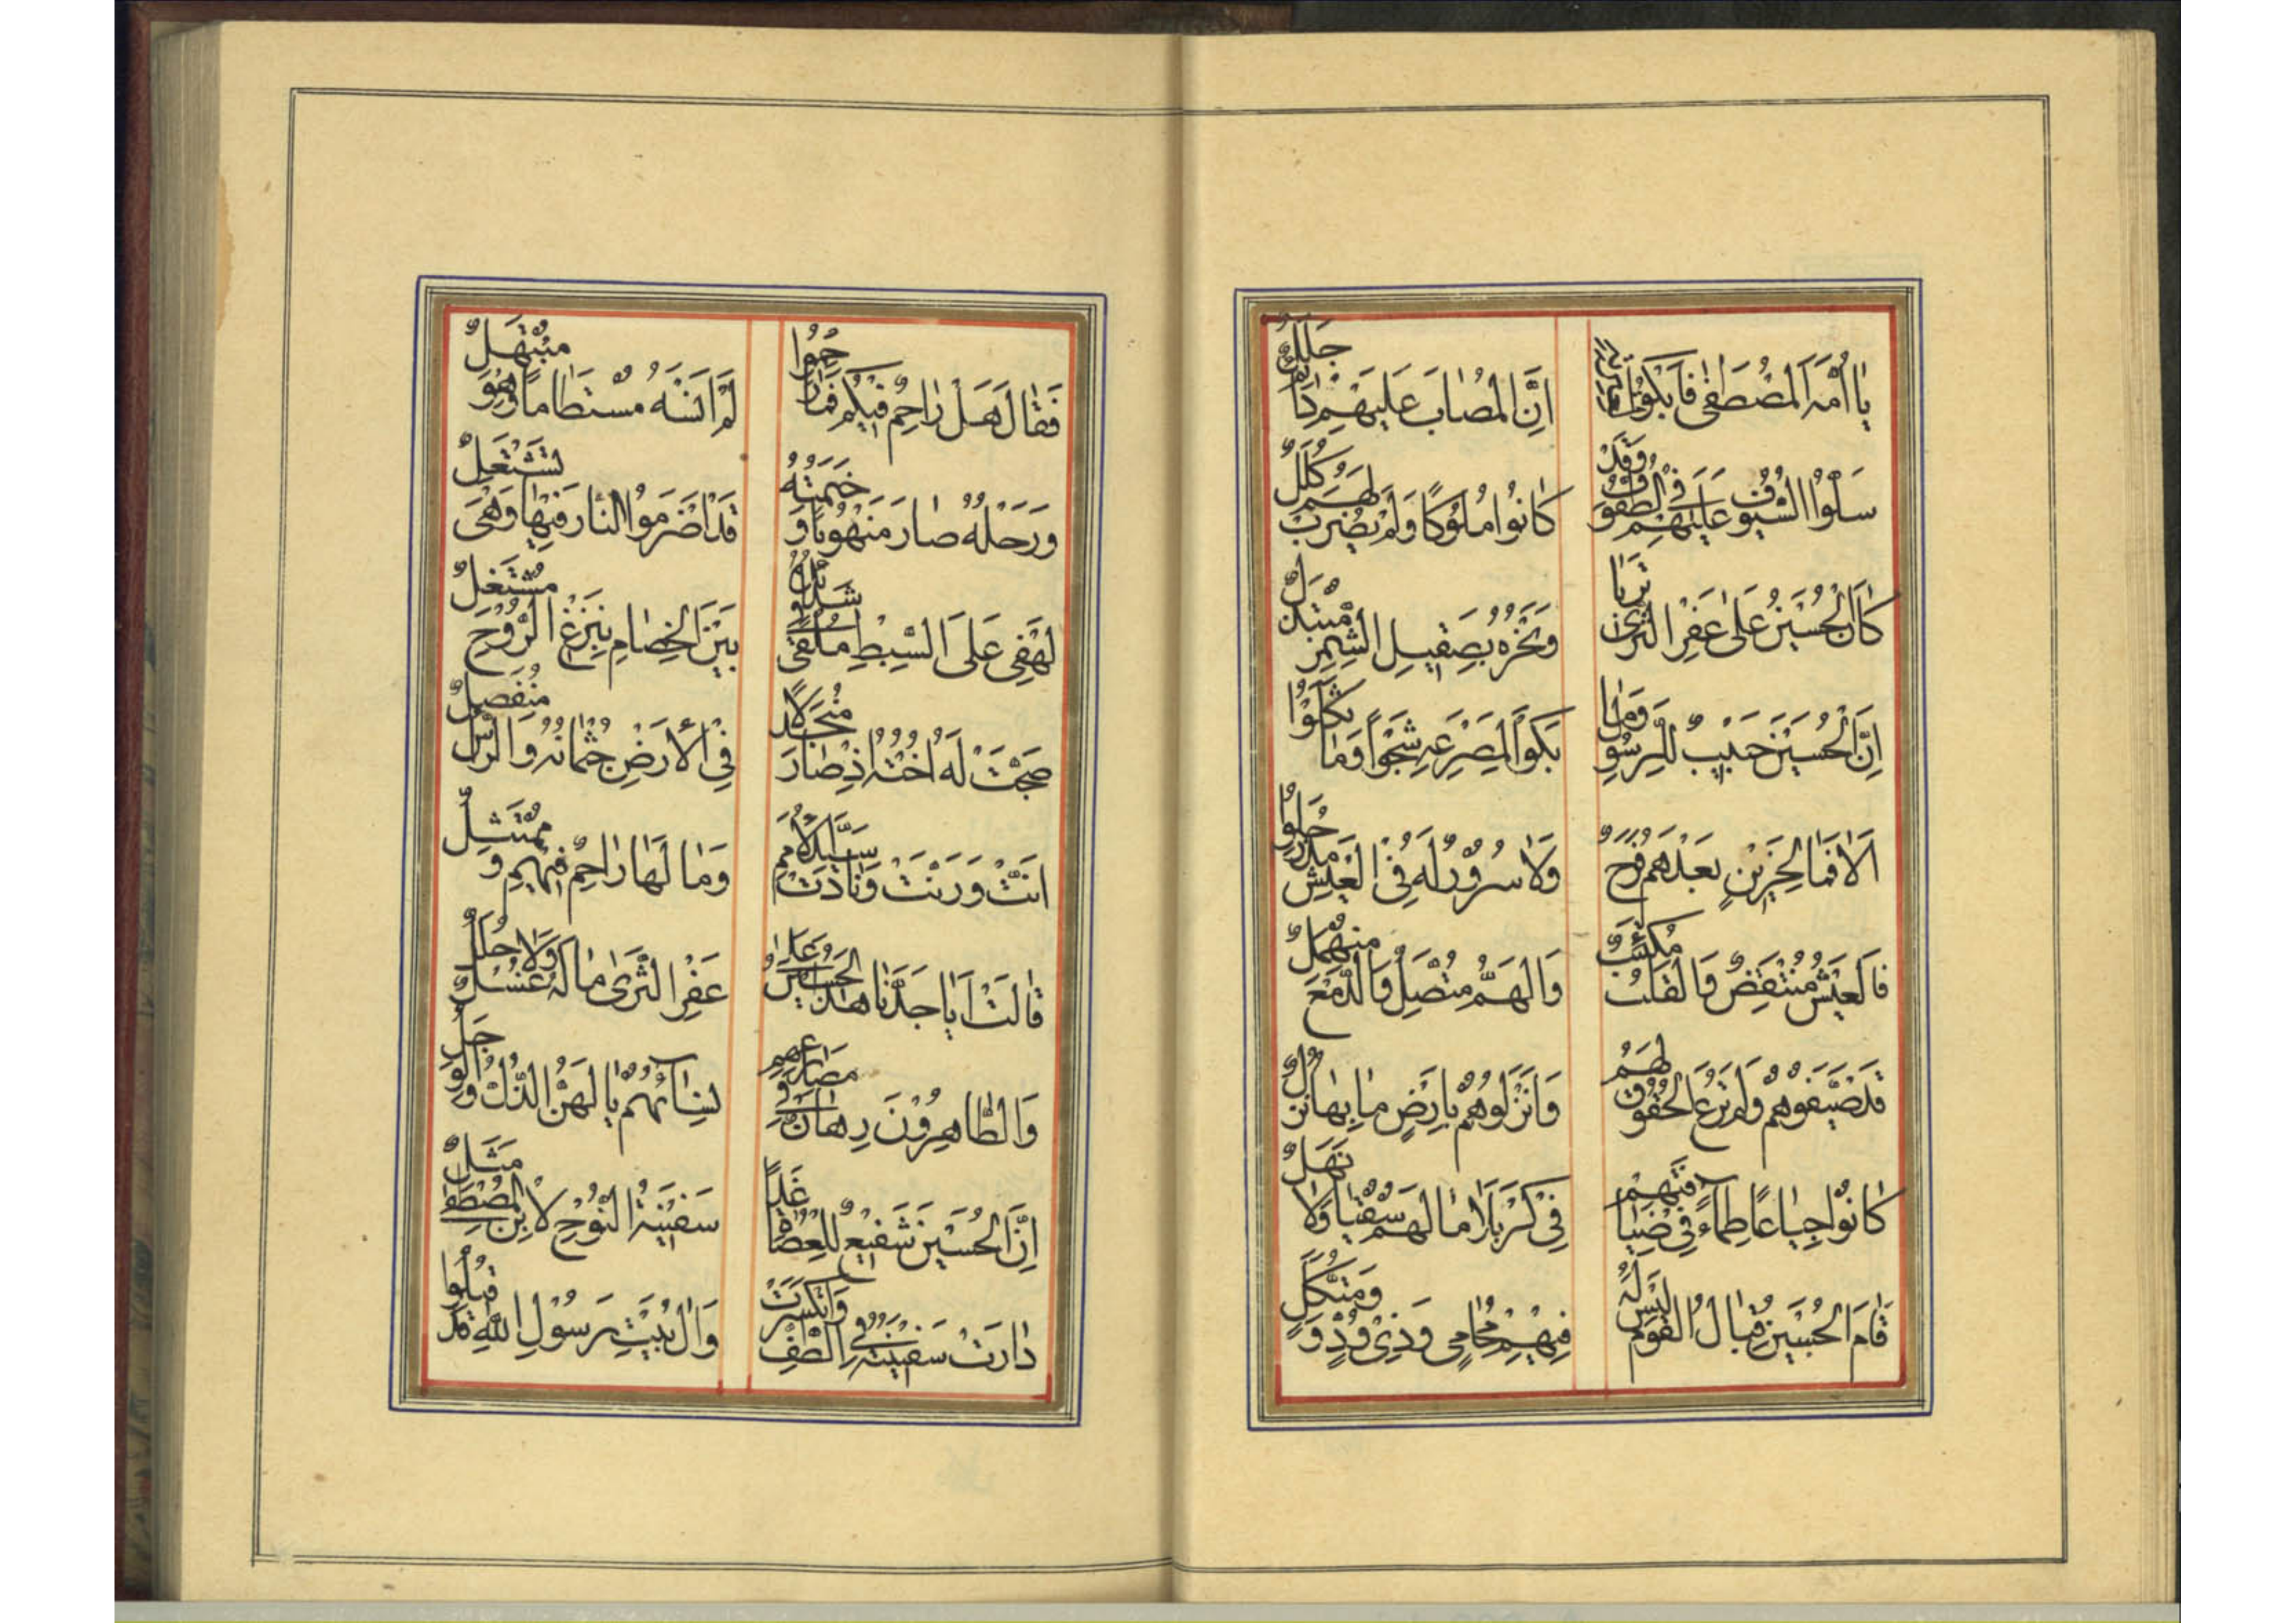 يَا أُمَّةَ الْمُصْطَفٰى فَابْكُوا
اِنَّ الْمُصٰابَ عَلَيْهِمْ جَلَلٌ
سَلُّوا السُّيُوفَ عَلَيْهِمْ فِى الطُّفُوفِ وَقَدْ
كٰانُوا مُلُوكًا وَلَمْ يُضْرَبْ لَهُمْ كُلَلٌ
كٰانَ الْحُسَيْنُ عَلٰى عَفْرِ الثَّرٰى تَرِبًا
وَنَحْرُهُ بِصَقِيلِ الشِّمْرِ
اِنَّ الْحُسَيْنَ حَبِيبٌ لِلرَّسُولِ وَمٰا
بَكَوْا لِمَصْرَعِهِ شَجْوًا وَمٰا ثَكَلُوا
اَلَا فَمٰا لِحَزِينٍ بَعْدَهُمْ فَرَحٌ
وَلٰا سُرُورٌ لَهُ فِى الْعَيْشِ
فَالْعَيْشُ مُنْتَقِضٌ وَالْقَلْبُ مُكْتَئِبٌ
وَالْهَمُّ مُتَّصِلٌ وَالدَّمْعُ مُنْهَمِلٌ
قَدْ ضَيَّفُوهُمْ وَلَمْ تُرْعَ الْحُقُوقُ لَهُمْ
وَاَنْزَلُوهُمْ بِاَرْضٍ مٰا بِهٰا نُزُلٌ
كٰانُوا جِيٰاعًا ظِمٰآءً فِى ضِيٰافَتِهِمْ
فِى كَرْبَلَا مٰا لَهُمْ سُقْيٰا وَلٰا نَهَلٌ
قٰامَ الْحُسَيْنُ فَقٰالَ الْقَوْمُ لَيْسَ لَهُ
فِيهِمْ مُحٰامِى وَذِى وُدٍّ وَمُتَّكَلٍ
فَقٰالَ هَلْ رٰاحِمٌ فِيكُمْ فَمٰا رَحِمُوا
لَمْ اَنْسَهُ مُسْتَطٰامًا وَهُوَ مُبْتَهِلٌ
وَرَحْلُهُ صٰارَ مَنْهُوبًا وَخَيْمَتُهُ
قَدْ اَضْرَمُوا النّٰارَ فِيهٰا وَهْىَ تَشْتَعِلُ
لَهْفِى عَلَى السِّبْطِ مُلْقًى فِى
بَيْنَ الْخِصٰامِ بِنَزْعِ الرُّوحِ مُشْتَغِلٌ
ضَجَّتْ لَهُ اُخْتُهُ اِذْ صٰارَ مُنْجَدِلًا
فِى الْاَرْضِ جُثْمٰانُهُ وَالرَّأْسُ مُنْفَصِلٌ
اَنَّتْ وَرَنَّتْ وَنٰادَتْ سَيِّدَ الْاُمَمِ
وَمٰا لَهٰا رٰاحِمٌ فِيهِمْ وَمُمْتَثِلٌ
قٰالَتْ اَيٰا جَدَّنٰا هٰذَا الْحُسَيْنُ عَلٰى
عَفْرِ الثَّرٰى مٰا لَهُ غُسْلٌ وَلٰا حُلَلٌ
وَالطّٰاهِرُونَ رِهٰانٌ فِى مَصٰارِعِهِمْ
نِسٰآئُهُمْ يٰا لَهُنَّ الذُّلُّ وَالْوَجَلُ
اِنَّ الْحُسَيْنَ شَفِيعٌ لِلْعُصٰاةِ غَدًا
سَفِينَةُ النُّوحِ لِابْنِ الْمُصْطَفٰى مَثَلٌ
دٰارَتْ سَفِينَتُهُ فِى الطَّفِّ وَانْكَسَرَتْ
وَآلُ بَيْتِ رَسُولِ اللّٰهِ قَدْ قُتِلُوا